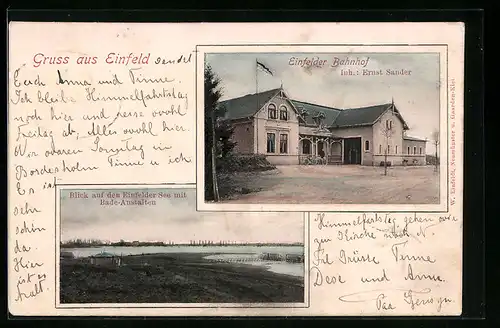 Gruss aus Einfeld sendet
Euch Anna und Tinne.
Ich bleibe Himmelfahrtstag
noch hier und reise wohl
Freitag ab, Alles wohl hier.
Wir waren Sonntag in
Bordesholm Tinne u ich
Es ist
sehr
schön
da.
Hier
ist es
Einfelder Bahnhof
Inh.: Ernst Sander
Blick auf den Einfelder See mit
Bade-Anstalten
Himmelfahrtstag gehen wir
zur Kirche nach N.
Grüsse Tinne
und Anna.